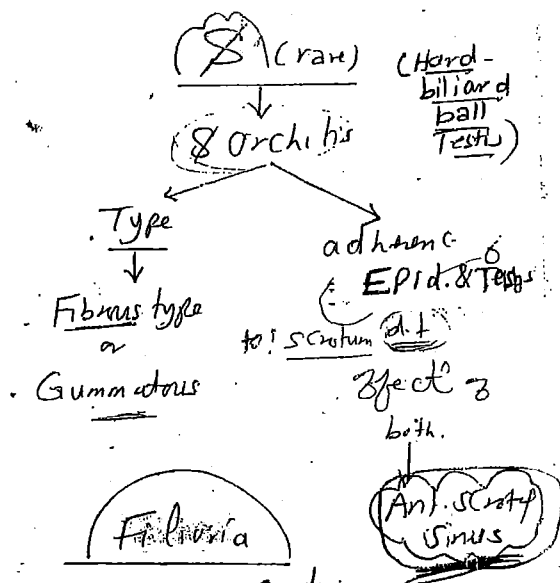 $ (rare)
(Hard-
biliard
ball
Testis)
$ orchitis
Type
Fibrous type
or
Gummatous
adherenc
Epid. & Testis
to scrotum d.t
both.
Ant. scrotal
sinus
Filiaria